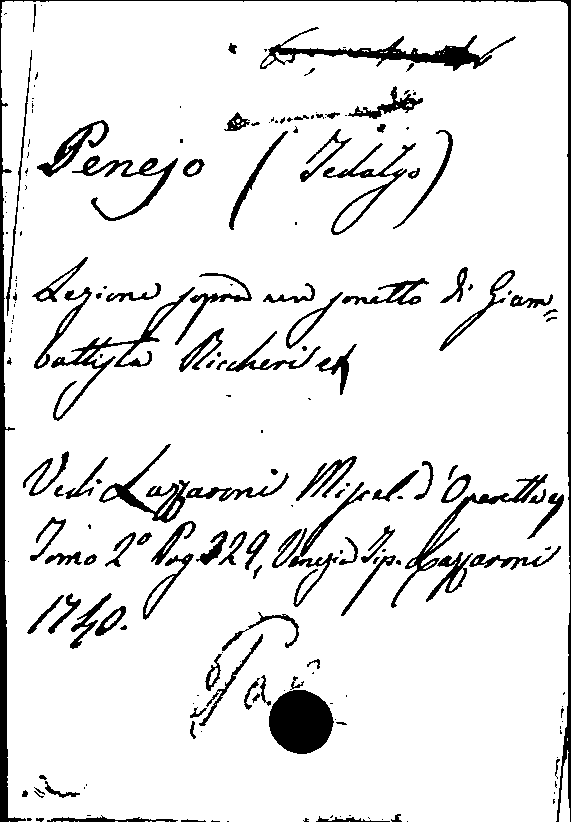 Penejo (Tedalgo)
Lezione sopra un sonetto di Giam=
battista Riccheri
Vedi Lazzaroni Miscel. d'Operette
Tomo 2º Pag. 329, Venezia Tip. Lazzaroni
1740.